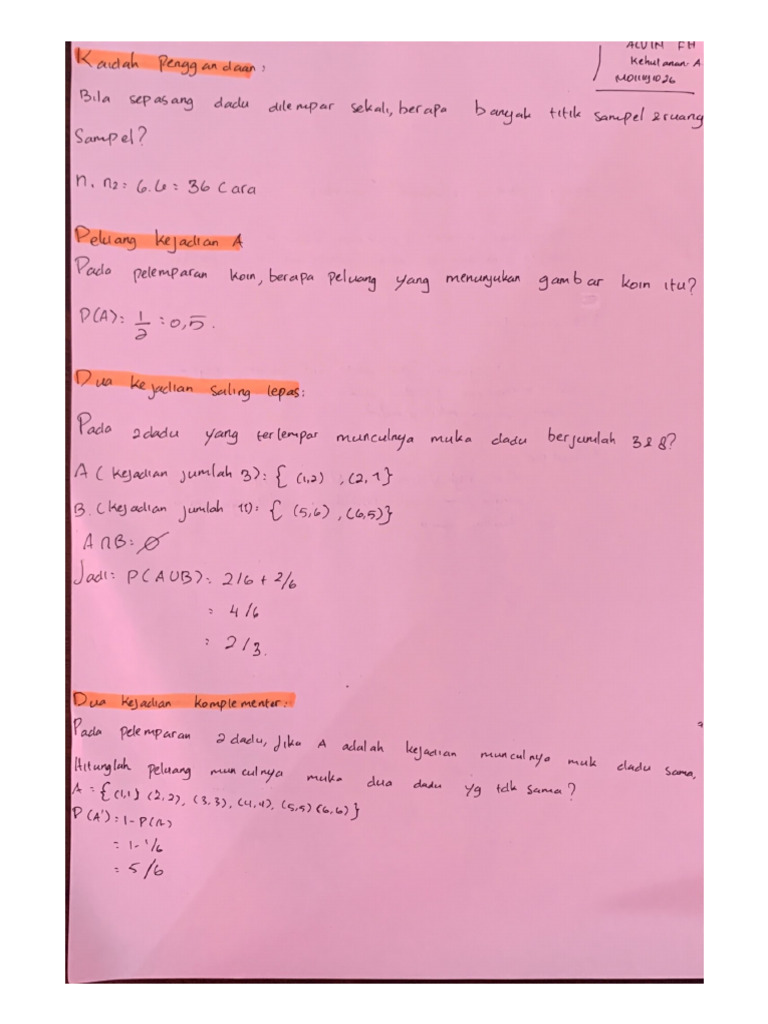 ALVIN FH
Kehutanan A
Kaidah Penggandaan:
Bila sepasang dadu dilempar sekali, berapa banyak titik sampel 2 ruang
Sampel?
n. n2 = 6.6 = 36 Cara
Peluang kejadian A
Pada pelemparan koin, berapa peluang yang menunjukan gambar koin itu?
P(A): 1/2 = 0,5.
Dua kejadian saling lepas:
Pada 2 dadu yang terlempar munculnya muka dadu berjumlah 3 & 8?
A (kejadian jumlah 3): { (1,2) , (2,1}
B. (kejadian jumlah 11): { (5,6) , (6,5)}
A∩B: ∅
Jadi: P(AUB): 2/6 + 2/6
= 4/6
: 2/3.
Dua kejadian komplementer:
Pada pelemparan 2 dadu, Jika A adalah kejadian munculnya muk dadu sama,
Hitunglah peluang munculnya muka dua dadu yg tdk sama?
A = {(1,1) (2,2), (3,3), (4,4), (5,5) (6,6)}
P(A'): 1-P(A)
= 1-1/6
= 5/6